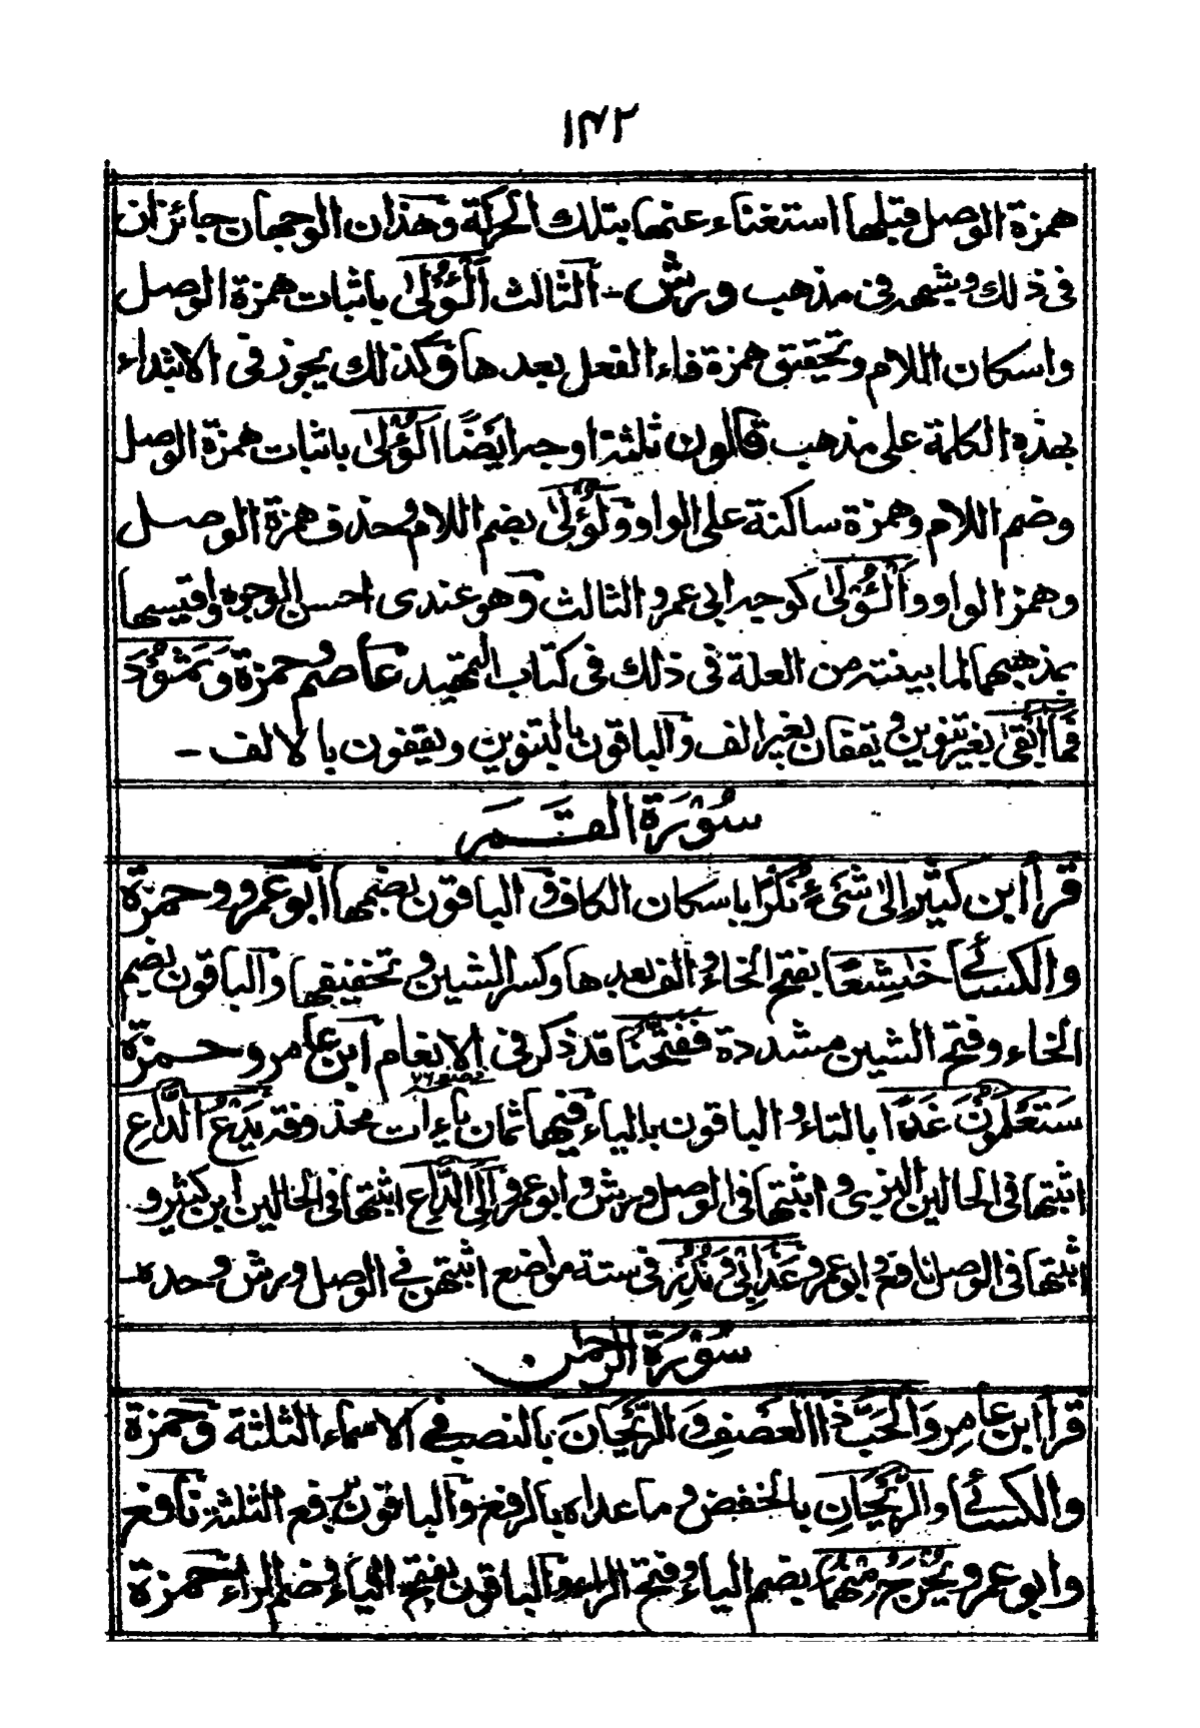 ١٤٢
همزة الوصل قبلها استغناء عنها بتلك الحركة وهذان الوجهان جائزان
فى ذلك وشبهه فى مذهب ورش - الثالث اَلْؤُلىٰ باثبات همزة الوصل
واسكان اللام وتحقيق همزة فاء الفعل بعدها وكذلك يجوز فى الابتداء
بهذه الكلمة على مذهب قالون ثلثة اوجه ايضًا اَلُؤْلىٰ باثبات همزة الوصل
وضم اللام وهمزة ساكنة على الواو ولُؤْلىٰ بضم اللام وحذف همزة الوصل
وهمز الواو واَلْؤُلىٰ كوجه ابى عمرو الثالث وهو عندى احسن الوجوه واقيسها
بمذهبهما لما بينته من العلة فى ذلك فى كتاب التمهيد عاصم وحمزة وَثَمُوْدَ
فَمَا اَبْقىٰ بغير تنوين ويقفان بغير الف والباقون بالتنوين ويقفون بالالف -
سُوْرَة القَمَر
قرأ ابن كثير إلىٰ شَىْءٍ نُكْرٍ باسكان الكاف والباقون بضمها ابو عمرو وحمزة
والكسائى خٰشِعًا بفتح الخاء والف بعدها وكسر الشين وتخفيفها والباقون بضم
الخاء وفتح الشين مشددة ففتَّحنا قد ذكر فى الانعام ابن عامر وحمزة
سَتَعْلَمُوْنَ غَدًا بالتاء والباقون بالياء فيها ثمان ياءات محذوفة يَدْعُ الدَّاعِ
اثبتها فى الحالين البزى واثبتها فى الوصل ورش وابو عمرو إِلَى الدَّاعِ اثبتها فى الحالين ابن كثير و
اثبتها فى الوصل نافع وابو عمرو عَذَابِىْ وَنُذُرِ فى ستة مواضع اثبتهن فى الوصل ورش وحده -
سُوْرَة الرحمٰن
قرأ ابن عامر وَالْحَبَّ ذَا الْعَصْفِ وَالرَّيْحَانَ بالنصب فى الاسماء الثلثة وحمزة
والكسائى والرَّيْحَانِ بالخفض وما عداه بالرفع والباقون برفع الثلثة نافع
وابو عمرو يُخْرَجُ مِنْهُمَا بضم الياء وفتح الراء والباقون بفتح الياء وضم الراء حمزة